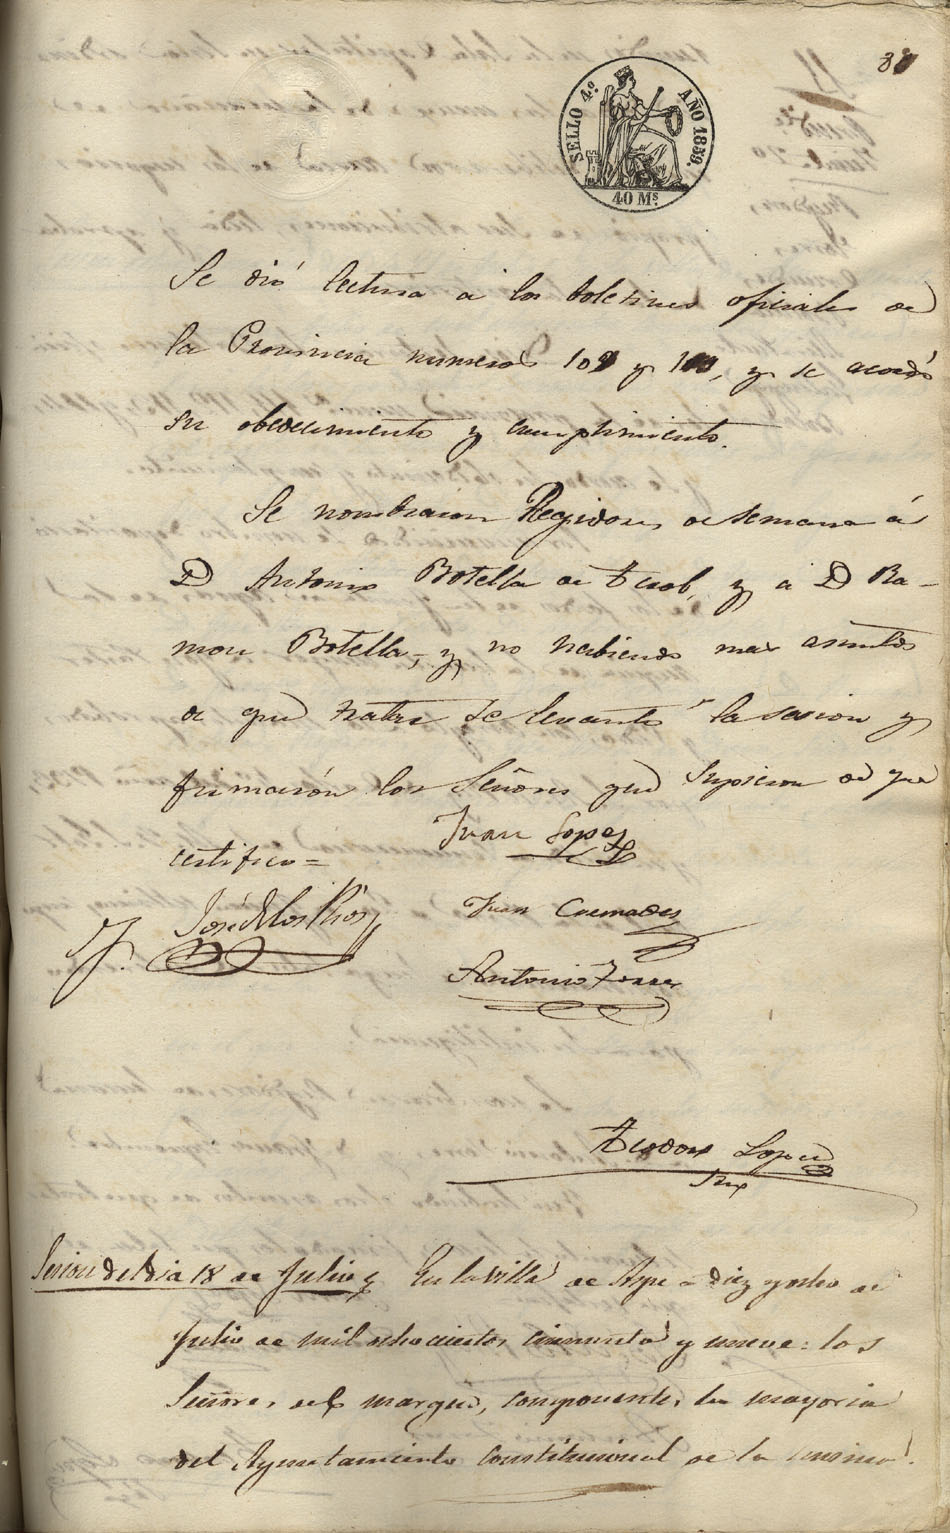 SELLO 4.º AÑO 1859.
40 Ms.
Se dió lectura á los boletines oficiales de
la Provincia numeros y se acordó
su obedecimiento y cumplimiento.
Se nombraron Regidores de semana á
D Antonio Botella de y á D Ra-
mon Botella, y no habiendo mas asuntos
de que tratar se levantó la sesion y
firmarón los Señores que supieron de que
certifico=
Juan Lopez
José de los Rios
Juan Cremades
Antonio Ferrer
Teodoro Lopez
Srio
Sesion del dia 18 de Julio En la villa de Aspe á diez y ocho de
Julio de mil ochocientos cincuenta y nueve: los
Señores del margen, componentes la mayoria
del Ayuntamiento Constitucional de la misma